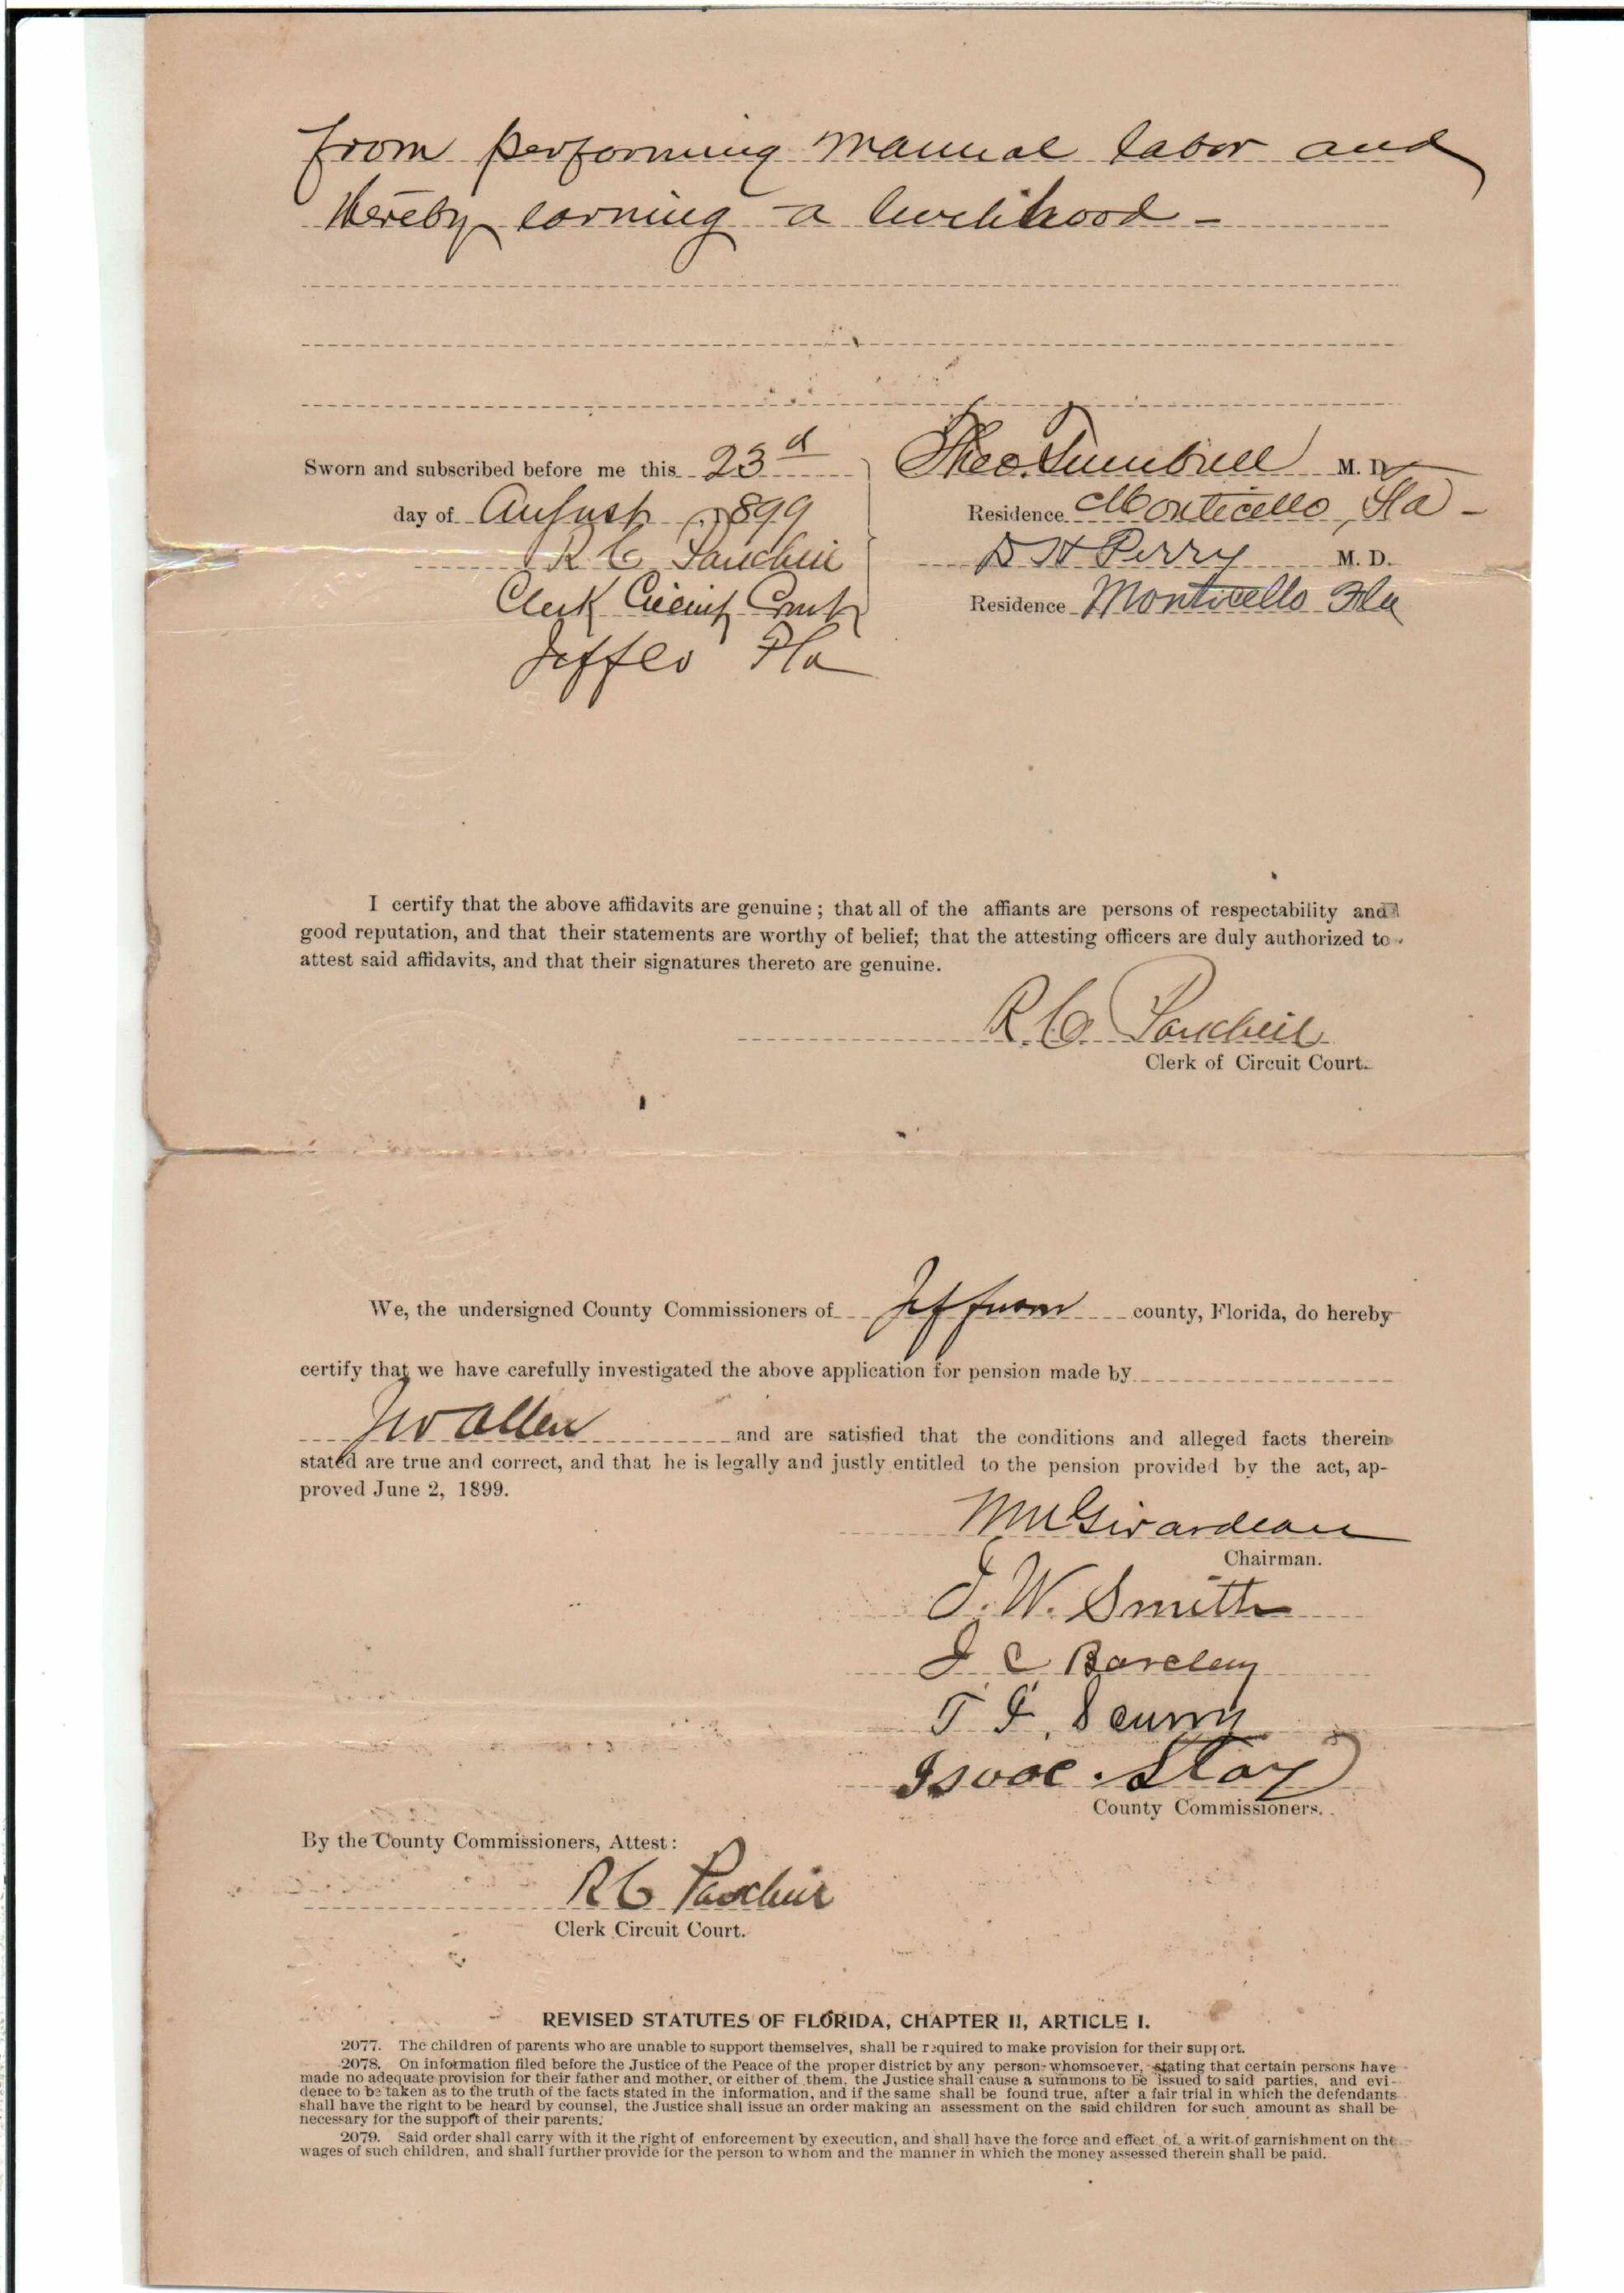 from performing manual labor and
thereby earning a livelihood -
Sworn and subscribed before me this 23d
day of August 1899
R C Parkhill
Clerk Circuit Court
Jeffer Fla
Theo. Turnbull M. D.
Residence Monticello, Fla -
D H Perry M. D.
Residence Monticello Fla
I certify that the above affidavits are genuine; that all of the affiants are persons of respectability and
good reputation, and that their statements are worthy of belief; that the attesting officers are duly authorized to
attest said affidavits, and that their signatures thereto are genuine.
R. C. Parkhill
Clerk of Circuit Court.
We, the undersigned County Commissioners of Jefferson county, Florida, do hereby
certify that we have carefully investigated the above application for pension made by
J W Allen and are satisfied that the conditions and alleged facts therein
stated are true and correct, and that he is legally and justly entitled to the pension provided by the act, ap-
proved June 2, 1899.
Girardeau
Chairman.
J. W. Smith
J C Barclay
T F. Scurry
Isaac
County Commissioners.
By the County Commissioners, Attest:
R C Parkhill
Clerk Circuit Court.
REVISED STATUTES OF FLORIDA, CHAPTER II, ARTICLE I.
2077. The children of parents who are unable to support themselves, shall be required to make provision for their support.
2078. On information filed before the Justice of the Peace of the proper district by any person whomsoever, stating that certain persons have
made no adequate provision for their father and mother, or either of them, the Justice shall cause a summons to be issued to said parties, and evi-
dence to be taken as to the truth of the facts stated in the information, and if the same shall be found true, after a fair trial in which the defendants
shall have the right to be heard by counsel, the Justice shall issue an order making an assessment on the said children for such amount as shall be
necessary for the support of their parents.
2079. Said order shall carry with it the right of enforcement by execution, and shall have the force and effect of a writ of garnishment on the
wages of such children, and shall further provide for the person to whom and the manner in which the money assessed therein shall be paid.